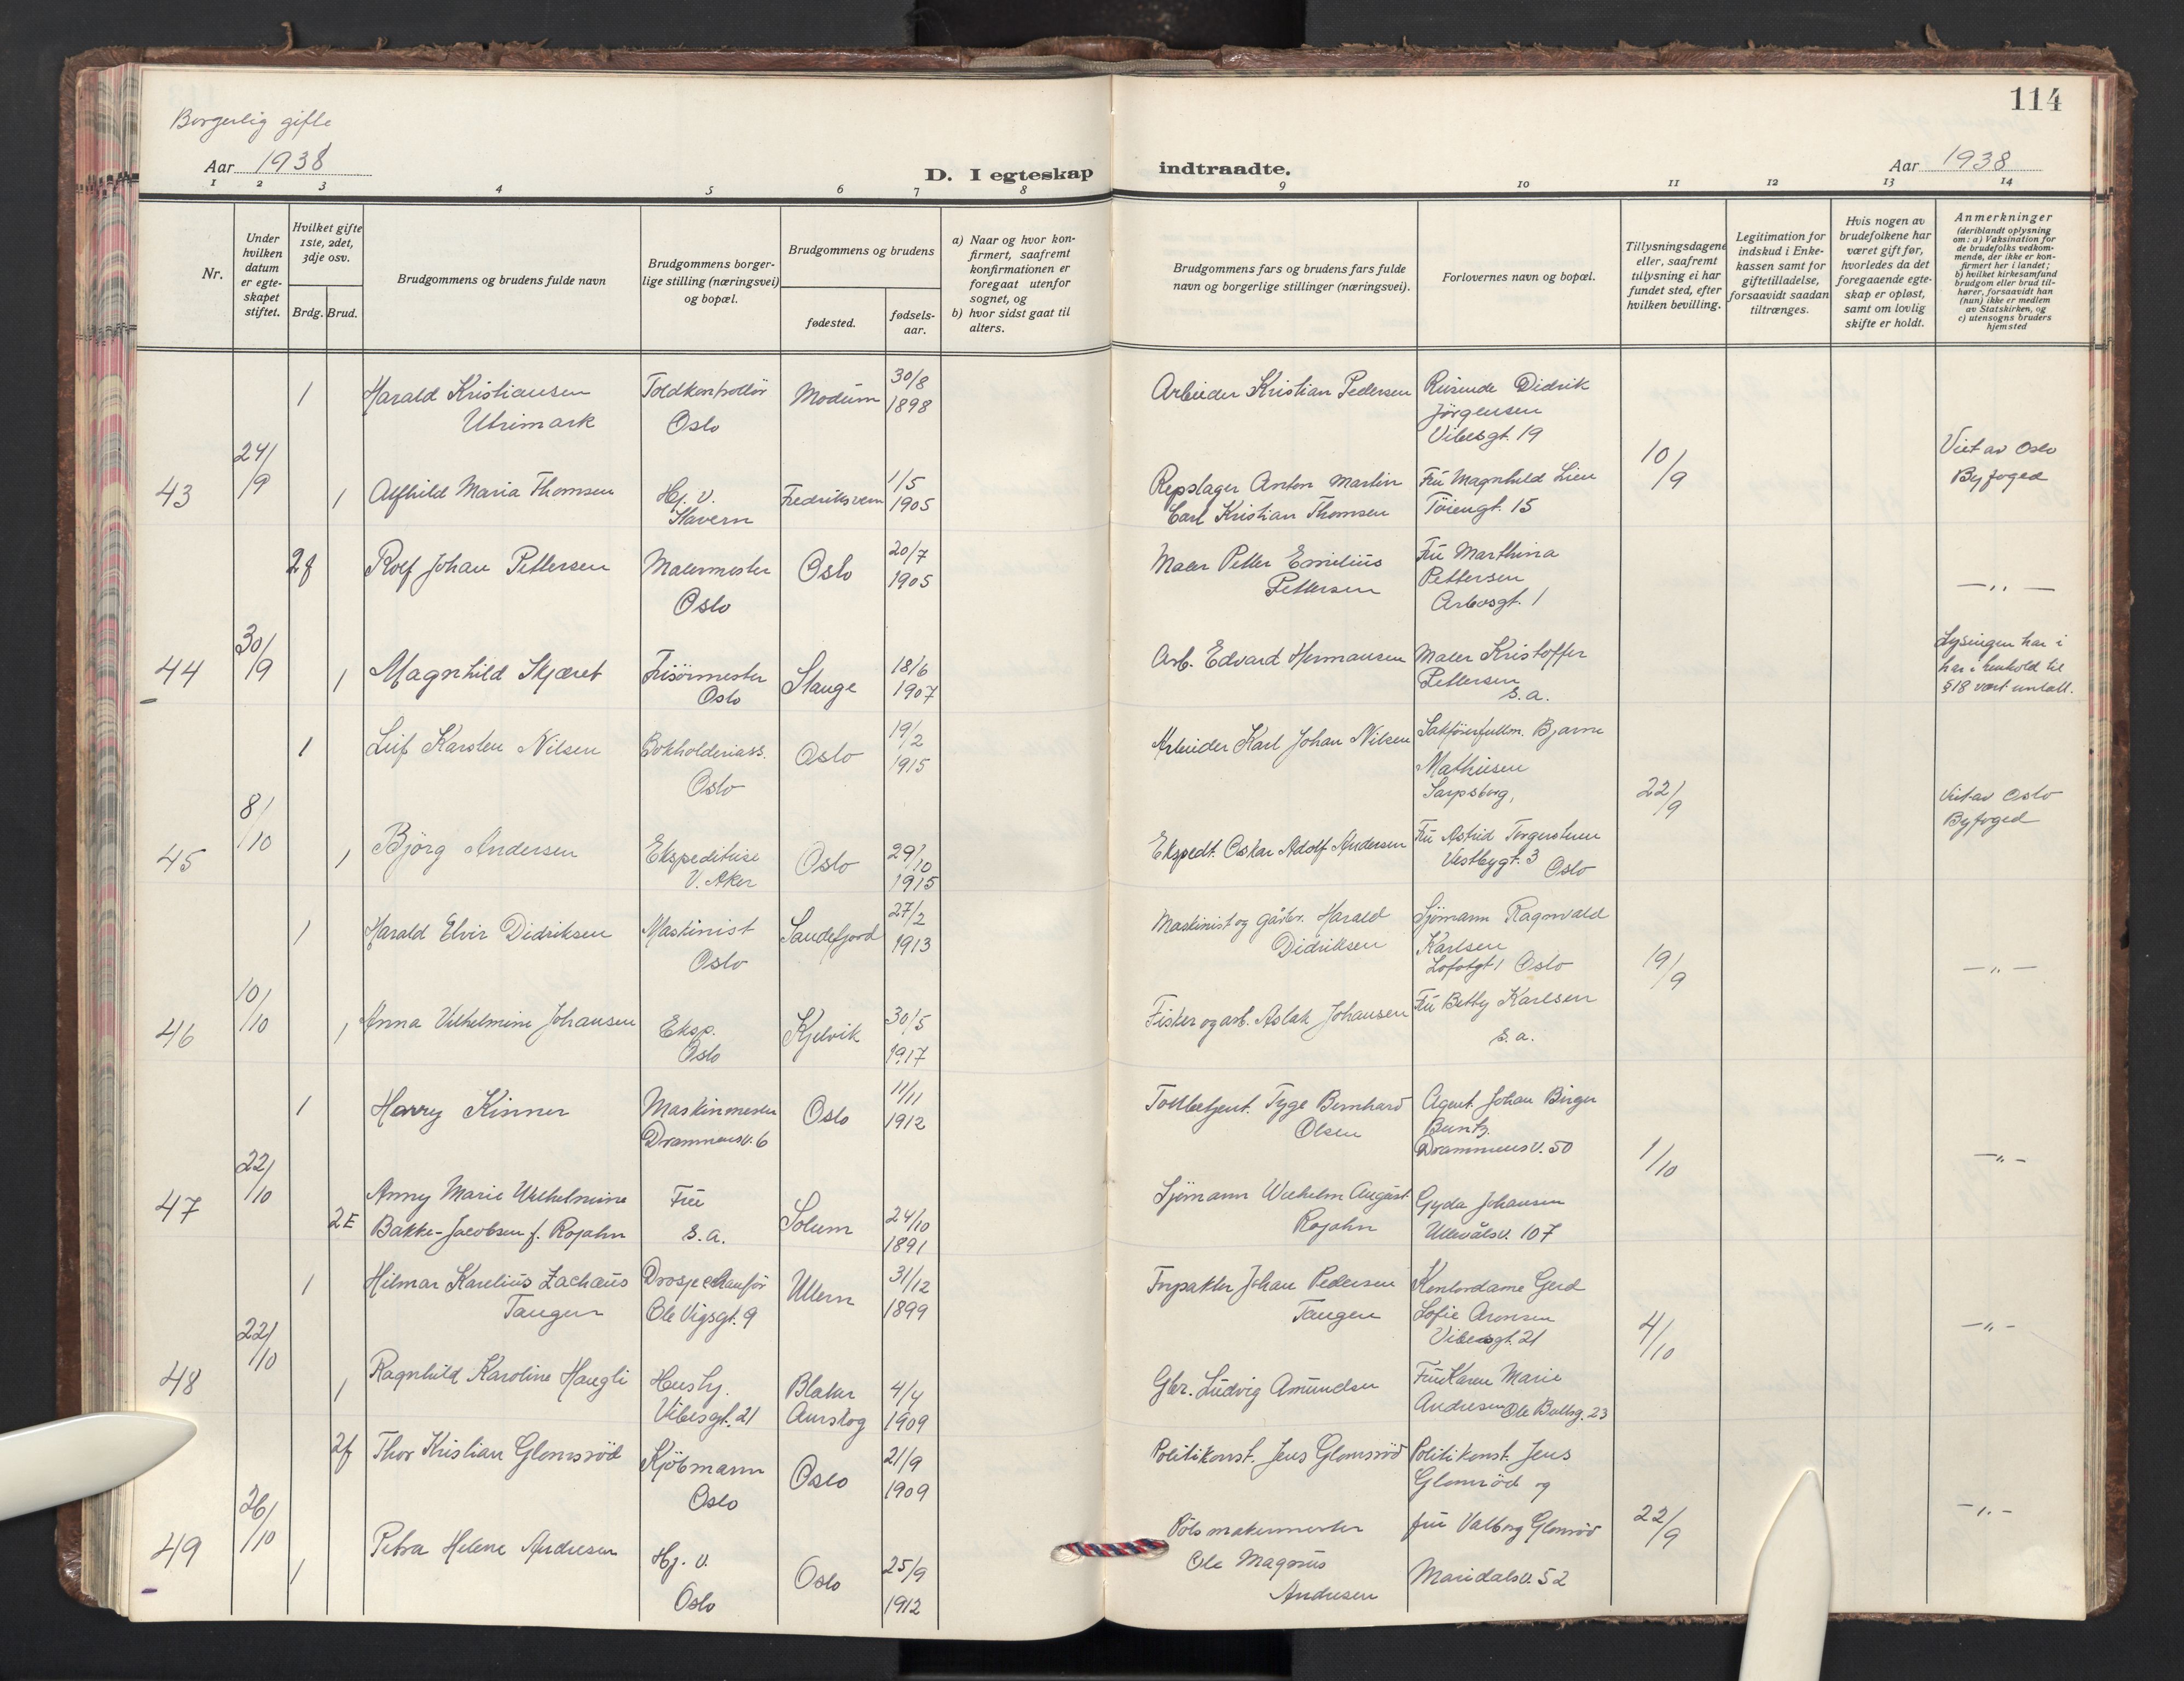 Borgerlig gifte
114
Aar 1938
D. I egteskap indtraadte.
Aar 1938
1 2 3 4 5 6 7 8 9 10 11 12 13 14
Nr.
Under hvilken datum er egteskapet stiftet.
Hvilket gifte 1ste, 2det, 3dje osv.
Brdg. Brud.
Brudgommens og brudens fulde navn
Brudgommens borgerlige stilling (næringsvei) og bopæl.
Brudgommens og brudens
fødested.
fødselsaar.
a) Naar og hvor konfirmert, saafremt konfirmationen er foregaat utenfor sognet, og
b) hvor sidst gaat til alters.
Brudgommens fars og brudens fars fulde navn og borgerlige stillinger (næringsvei).
Forlovernes navn og bopæl.
Tillysningsdagene eller, saafremt tillysning ei har fundet sted, efter hvilken bevilling.
Legitimation for indskud i Enkekassen samt for giftetilladelse, forsaavidt saadan tiltrænges.
Hvis nogen av brudefolkene har været gift før, hvorledes da det foregaaende egteskap er opløst, samt om lovlig skifte er holdt.
Anmerkninger (deriblandt oplysning om: a) Vaksination for de brudefolks vedkommende, der ikke er konfirmert her i landet; b) hvilket kirkesamfund brudgom eller brud tilhører, forsaavidt han (hun) ikke er medlem av Statskirken, og c) utensogns bruders hjemsted
1 Harald Kristiansen Toldkontrollør Modum 30/8 Arbeider Kristian Pedersen Didrik
Utrimark Oslo 1898 Jörgensen
Vibesgt. 19
24/9 10/9 Viet av Oslo
43 1 Alfhild Maria Thomsen Hj. v. Fredriksvern 1/5 Repslager Anton Martin Fru Magnhild Lien Byfoged
Stavern 1905 Carl Kristian Thomsen Töiengt. 15
2f Rolf Johan Pettersen Malermester Oslo 20/7 Maler Petter Emilius Fru Marthina
Oslo 1905 Pettersen Pettersen — " —
Arbosgt. 1
30/9 Lysingen har i
44 1 Magnhild Skjæret Frisörmester Stange 18/6 Arb. Edvard Hermansen Maler Kristoffer har i henhold til
Oslo 1907 Pettersen §18 vært untatt.
s.a.
1 Leif Karsten Nilsen Bokholderiass. Oslo 19/2 Arbeider Karl Johan Nilsen Sakförerfullm. Bjarne
Oslo 1915 Mathiesen
Sarpsborg,
8/10 22/9 Viet av Oslo
45 1 Björg Andersen Ekspeditrise Oslo 29/10 Ekspedt. Oskar Adolf Andersen Fru Astrid Byfoged
V. Aker 1915 Vestbygt. 3 Oslo
1 Harald Elvir Didriksen Maskinist Sandefjord 27/2 Maskinist og gårbr. Harald Sjömann Ragnvald
Oslo 1913 Didriksen Karlsen
Lofotgt 1 Oslo 19/9 — " —
10/10
46 1 Anna Vilhelmine Johansen Eksp. Kjelvik 30/5 Fisker og arb. Aslak Johansen Fru Betty Karlsen
Oslo 1917 s. a.
1 Harry Kinner Maskinmester Oslo 11/11 Tollbetjent. Tyge Bernhard Agent. Johan Birger
Drammensv. 6 1912 Olsen Buntz.
Drammensv. 50 1/10 — " —
22/10
47 2E Anny Marie Wilhelmine Fru Solum 24/10 Sjömann Wilhelm August Gyda Johansen
Bakke-Jacobsen f. Rojahn s. a. 1891 Rojahn Ullevålsv. 107
1 Hilmar Karelius Zachæus Drosjechauför Ullern 31/12 Forpakter Johan Pedersen Kontordame Gerd
Tangen Ole Vigsgt. 9 1899 Tangen Sofie Aronsen
Vibesgt. 21 4/10 — " —
22/10
48 1 Ragnhild Karoline Haugli Hushj. Blaker 4/4 Gbr. Ludvig Amundsen Fru Karen Marie
Vibesgt. 21 Aurskog 1909 Andresen Ole Bullsg. 23
2f Thor Kristian Glomsröd Kjöbmann Oslo 21/9 Politikonst. Jens Glomsröd Politikonst. Jens
Oslo 1909 Glomsröd og
26/10 Pölsmakermester fru Valborg Glomsröd 22/9 — " —
49 1 Petra Helene Andresen Hj. v. Oslo 25/9 Ole Magnus Maridalsv. 52
Oslo 1912 Andresen